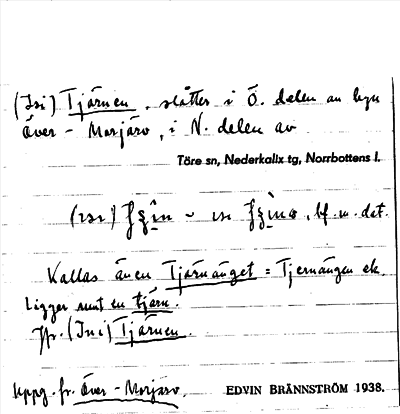 (Isi) Tjärnen, slåtter i Ö. delen av byn
Över-Morjärv, i N. delen av
Töre sn, Nederkalix tg, Norrbottens l.
bf. m. dat.
Kallas även Tjärnänget = Tjernängen ek.
Ligger runt en tjärn.
Jfr. (Ini) Tjärnen.
Uppg. fr. Över-Morjärv.
EDVIN BRÄNNSTRÖM 1938.